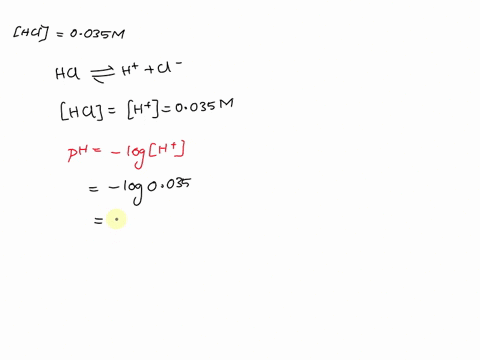 [HCl] = 0.035M
HCl ⇌ H⁺ + Cl⁻
[HCl] = [H⁺] = 0.035 M
pH = -log[H⁺]
= -log 0.035
= .